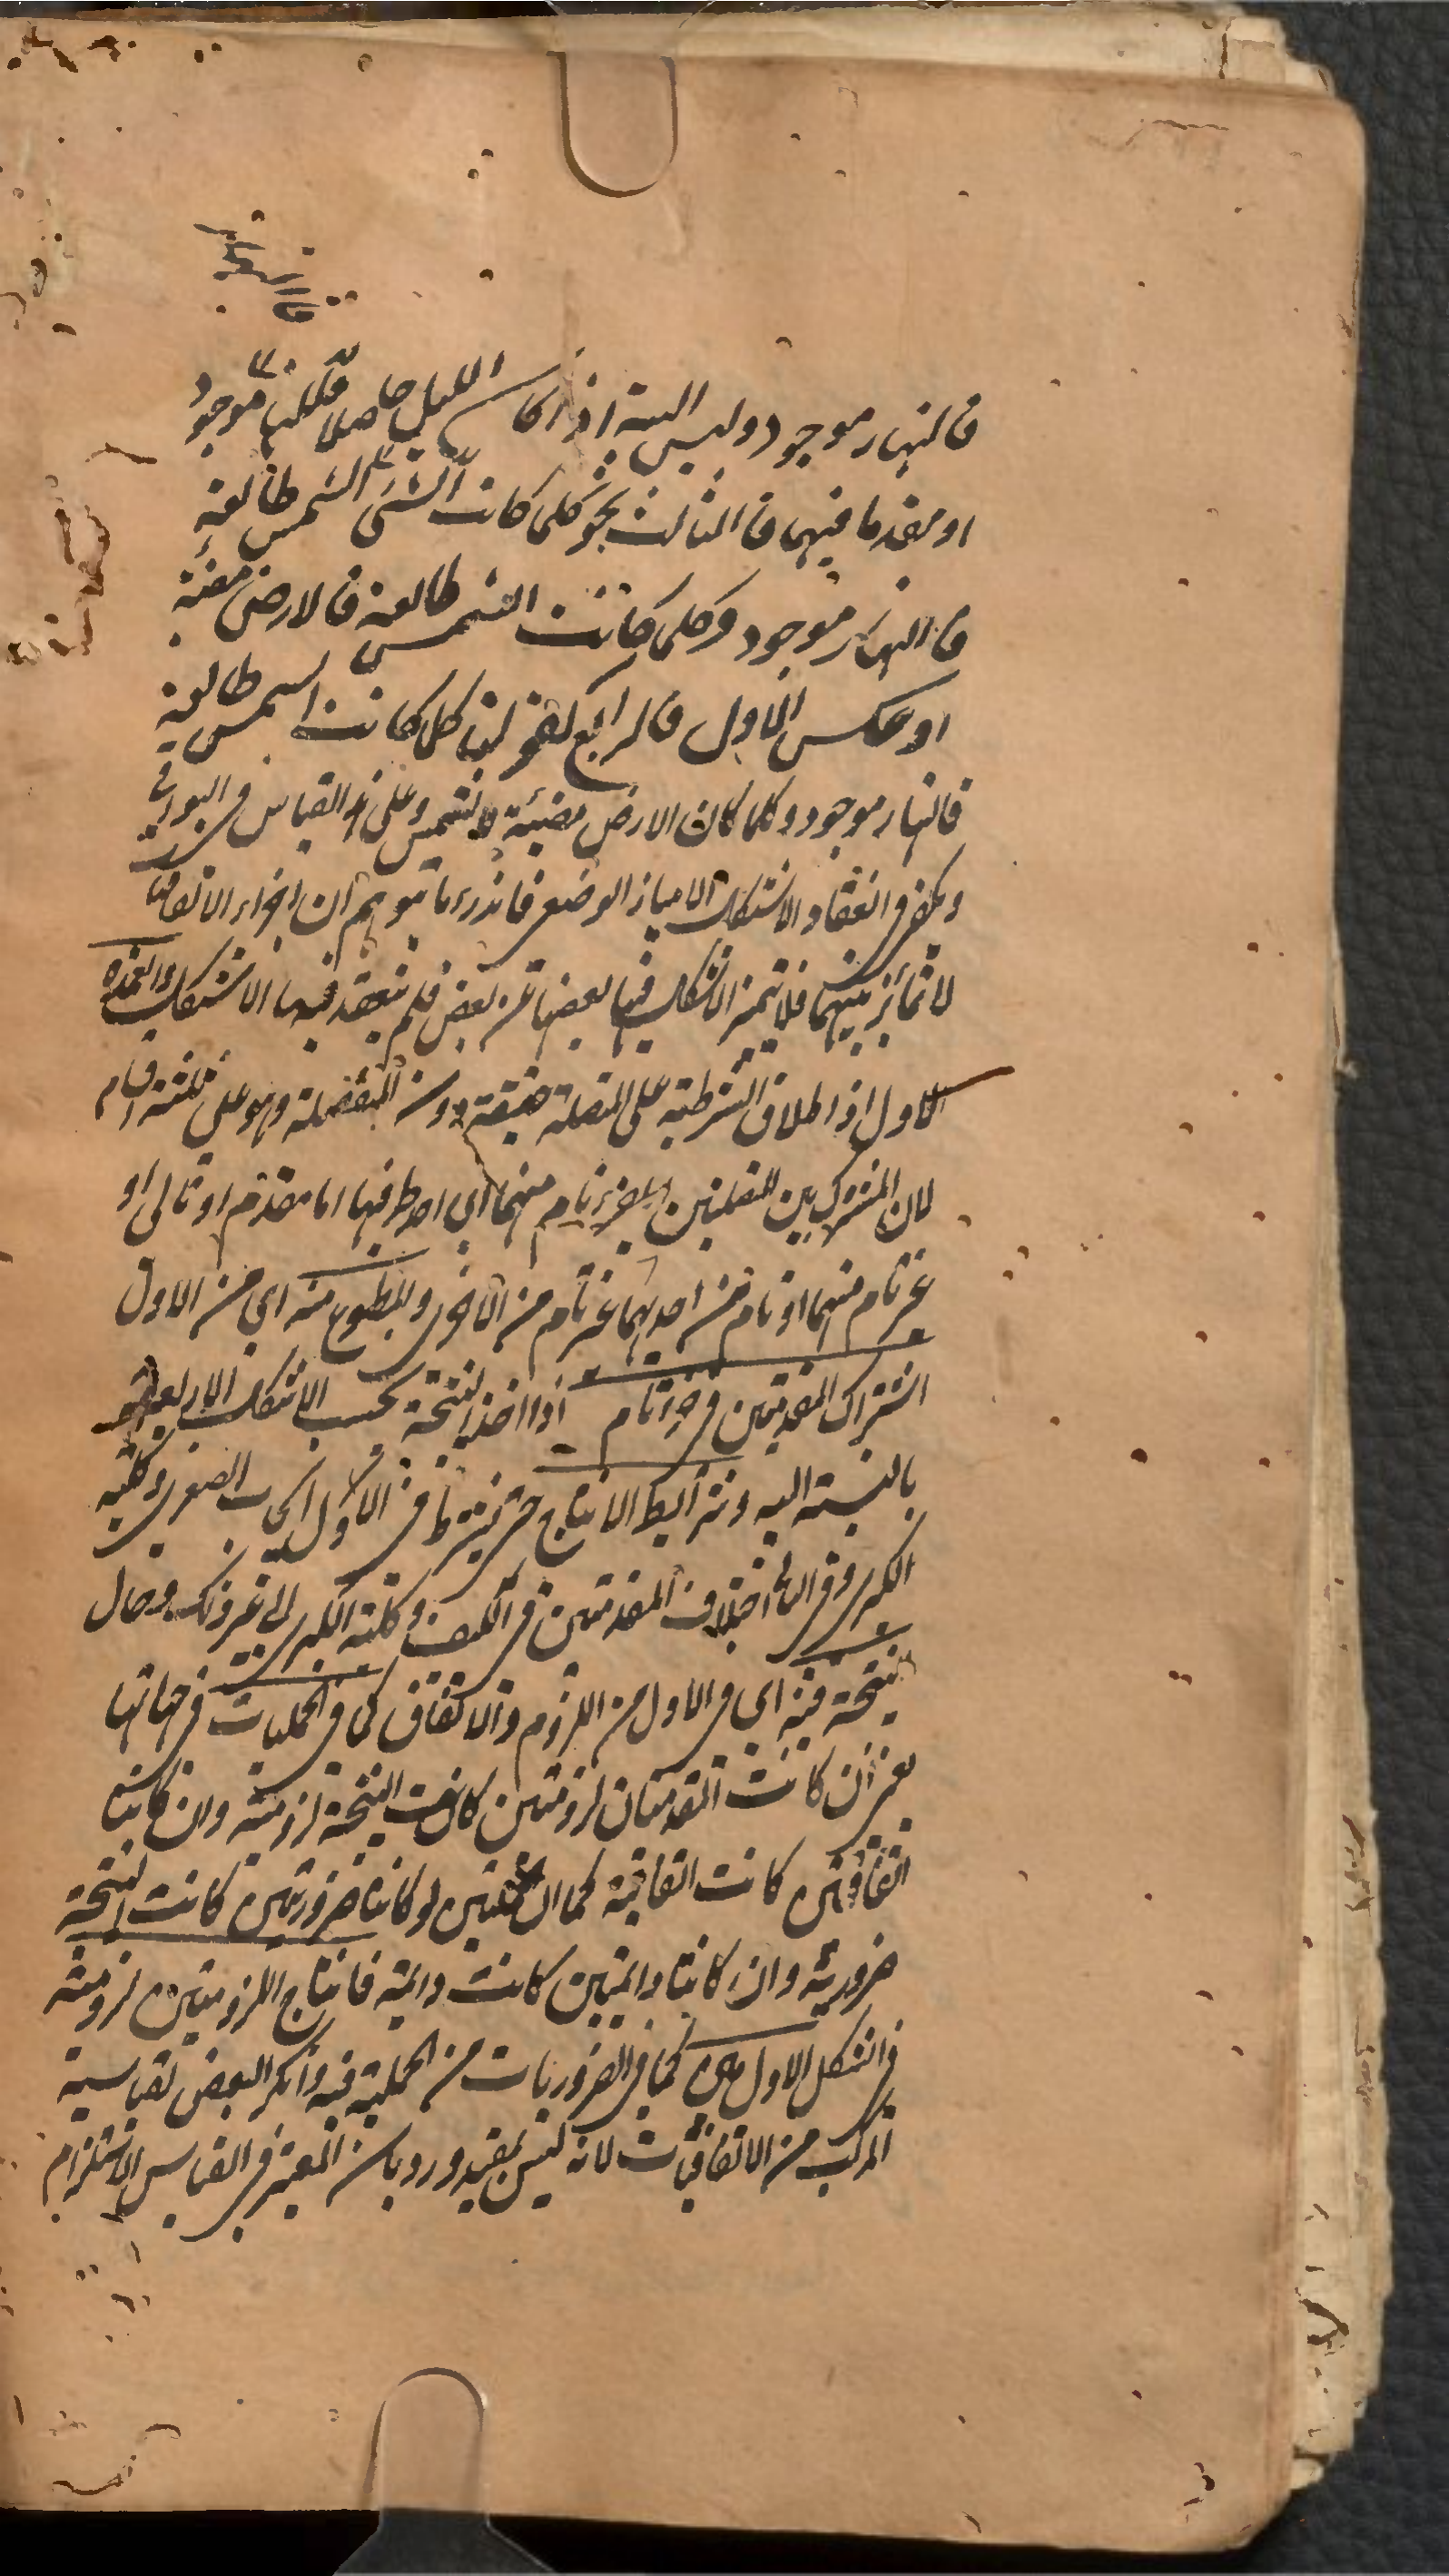 فالنهار موجود وليس البتة اذا كان الليل حاصلا فالنهار موجود
او مقدما فيهما فالثالث نحو كلما كانت الشمس طالعة
فالنهار موجود وكلما كانت الشمس طالعة فالارض مضيئة
او عكس الاول فالرابع كقولنا كلما كانت الشمس طالعة
فالنهار موجود وكلما كان الارض مضيئة فالشمس وعلى هذا القياس في البواقي
ويكفى فى انعقاد الاشكال الامتياز الوضعى فاندرء ما توهم ان اجزاء الاتفاقيات
لا تمايز بينهما فلا تتميز الاشكال فيها بعضها عن بعض فلم ينعقد فيها الاشكال والعمدة
الاول اذ اطلاق الشرطية على المتصلة حقيقة دون المنفصلة وهو على ثلثة اقسام
لان المشترك بين المتصلتين اما جزء تام منهما اى احد طرفيها اما مقدم او تالى او
غير تام منهما او تام من احدهما غير تام من الآخر والمطبوع منه اى من الاول
اشتراك المقدمتين فى جزء تام اذا اخذ النتيجة بحسب الاشكال الاربعة
بالنسبة اليه وشرائط الانتاج حتى يشترط فى الاول ايجاب الصغرى وكلية
الكبرى وفى الثانى اختلاف المقدمتين فى الكيف وكلية الكبرى الى غير ذلك وحال
النتيجة فيه اى فى الاول من اللزوم والاتفاق كما فى الحمليات فى جهاتها
يعنى ان كانت المقدمتان لزوميتين كانت النتيجة لزومية وان كانتا
اتفاقيتين كانت اتفاقية كما ان الحمليتين لو كانتا ضروريتين كانت النتيجة
ضرورية وان كانتا دائمتين كانت دائمة فانتاج اللزوميتين لزومية
فى الشكل الاول بين كما فى الضروريات من الحملية فيه وانكر البعض لقياسية
المركب من الاتفاقيات لانه ليس بمفيد ورد بان المعتبر فى القياس الاستلزام